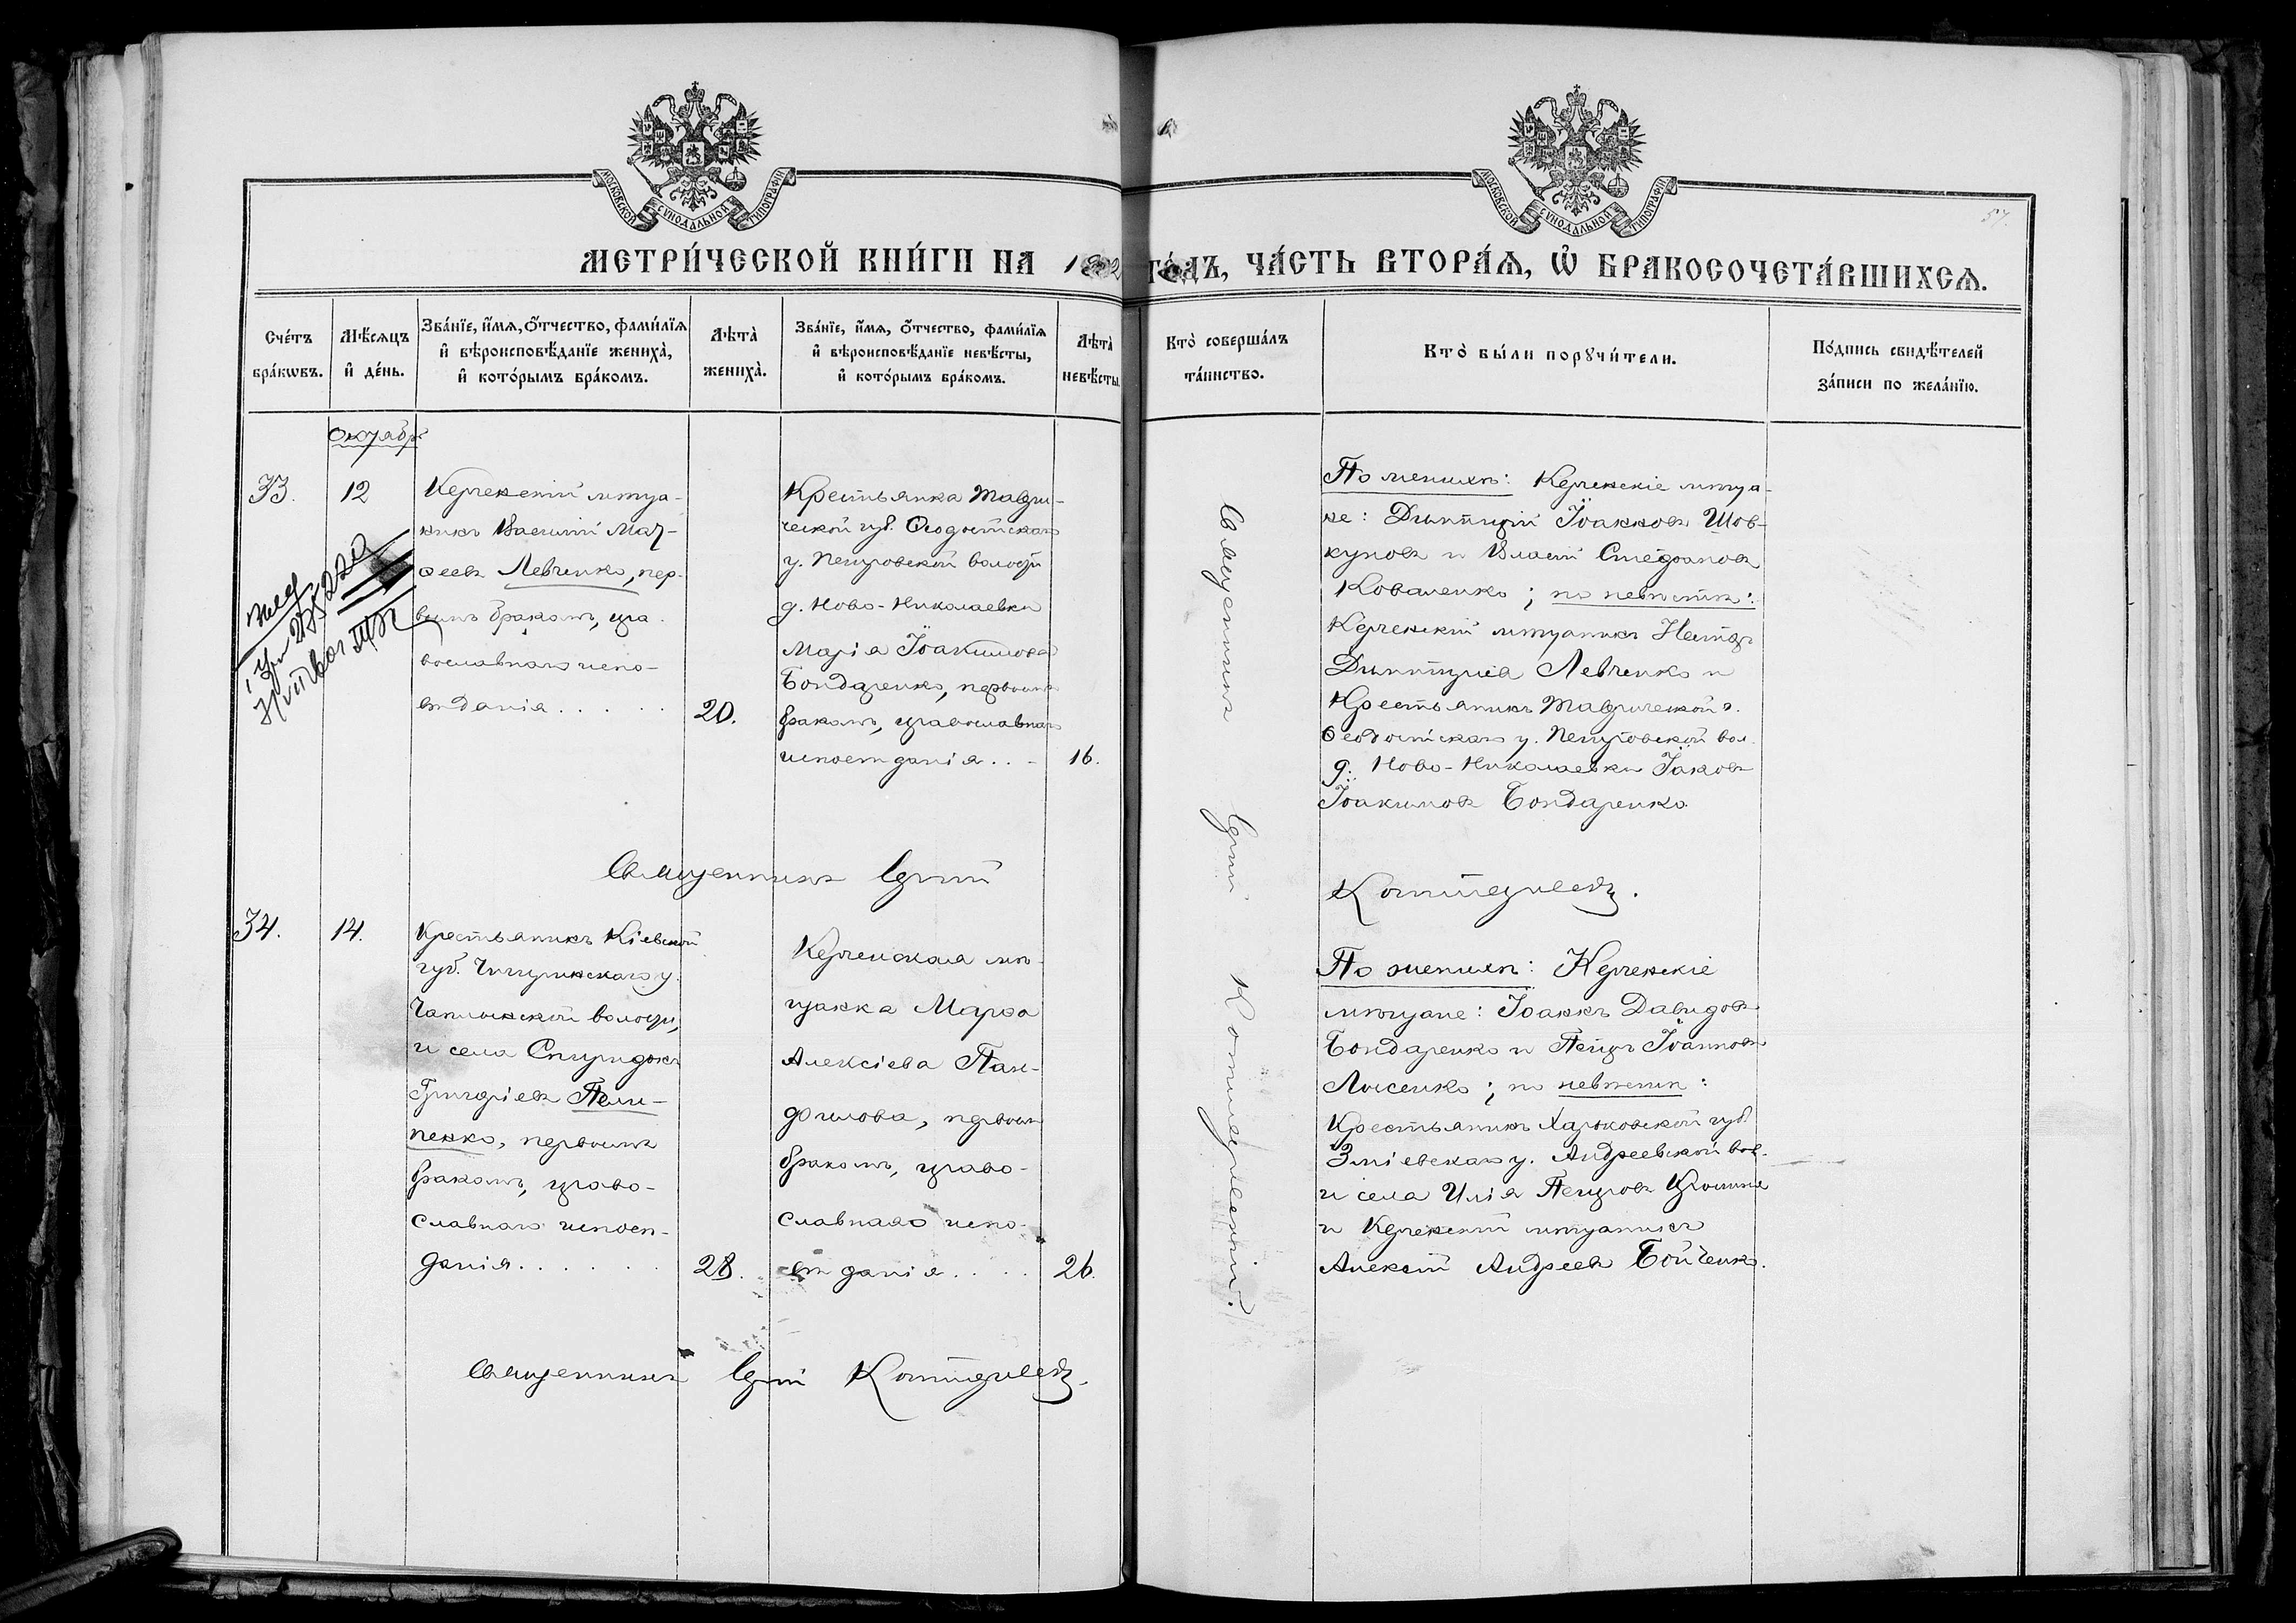 МОСКОВСКОЙ СУНОДАЛЬНОЙ ТИПОГРАФІИ
МОСКОВСКОЙ СУНОДАЛЬНОЙ ТИПОГРАФІИ
57.
МЕТРИ́ЧЕСКОЙ КНИ́ГИ НА 1892 ГО́ДЪ, ЧА́СТЬ ВТОРА́Ѧ, Ѽ БРАКОСОЧЕТА́ВШИХСѦ.
Сче́тъ
бра́кѡвъ.
Мѣ́сяцъ
и҆ де́нь.
Зва́нїе, и҆́мѧ, ѻ҆́тчество, фами́лїѧ
и҆ вѣроисповѣ́данїе жениха̀,
и҆ кото́рымъ бра́комъ.
Лѣта̀
жениха̀.
Зва́нїе, и҆́мѧ, ѻ҆́тчество, фами́лїѧ
и҆ вѣроисповѣ́данїе невѣ́сты,
и҆ кото́рымъ бра́комъ.
Лѣта̀
невѣ́сты.
Кто̀ соверша́лъ
та́инство.
Кто̀ бы́ли порꙋчи́тели.
По́дпись свидѣ́телей
за́писи по жела́нїю.
Октябрь
33.
12
Керченскій мѣща-
нинъ Василій Мат-
ѳеевъ Левченко, пер-
вымъ бракомъ, пра-
вославнаго испо-
вѣданія . . . . .
20.
Крестьянка Таври-
ческой губ. Ѳеодосійскаго
у. Петровской волости
д. Ново-Николаевки
Марія Іоакимова
Бондаренко, первымъ
бракомъ, православнаго
исповѣданія . . -
16.
По женихѣ: Керченскіе мѣща-
не: Димитрій Іоанновъ Шов-
куновъ и Власій Стефановъ
Коваленко; по невѣстѣ:
Керченскій мѣщанинъ Несторъ
Димитріевъ Левченко и
Крестьянинъ Таврической г.
Ѳеодосійскаго у. Петровской вол.
д. Ново-Николаевки Іаковъ
Іоакимовъ Бондаренко
Священникъ Сергій
Священникъ Сергій
34.
14.
Крестьянинъ Кіевской
губ. Чигиринскаго у.
волости,
и села Спиридонъ
Григоріевъ Пили-
пенко, первымъ
бракомъ, право-
славнаго исповѣ-
данія . . . . . .
28.
Керченская мѣ-
щанка Марѳа
Алексіева Пан-
филова, первымъ
бракомъ, право-
славнаго испо-
вѣданія . . . .
26.
По женихѣ: Керченскіе
мѣщане: Іоаннъ Давидовъ
Бондаренко и Петръ Іоанновъ
Лысенко; по невѣстѣ:
Крестьянинъ Харьковской губ.
Зміевскаго у. Андреевской вол.
и села Илія Петровъ
и Керченскій мѣщанинъ
Алексій Андреевъ Бойченко.
Священникъ Сергій